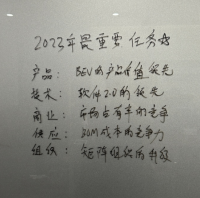 2023年最重要任务
产品：BEV的产品价值领先
技术：软件2.0的领先
商业：市场占有率的竞争
供应：BOM成本的竞争力
组织：矩阵组织的升级